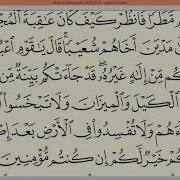 م مَّطَرًا فَٱنظُرْ كَيْفَ كَانَ عَٰقِبَةُ ٱلْمُجْ
مَدْيَنَ أَخَاهُمْ شُعَيْبًا قَالَ يَٰقَوْمِ ٱعْبُ
م مِّنْ إِلَٰهٍ غَيْرُهُۥ قَدْ جَآءَتْكُم بَيِّنَةٌ مِّن
ٱلْكَيْلَ وَٱلْمِيزَانَ وَلَا تَبْخَسُوا۟
ءَهُمْ وَلَا تُفْسِدُوا۟ فِى ٱلْأَرْضِ بَعْدَ إِصْ
مْ خَيْرٌ لَّكُمْ إِن كُنتُم مُّؤْمِنِينَ